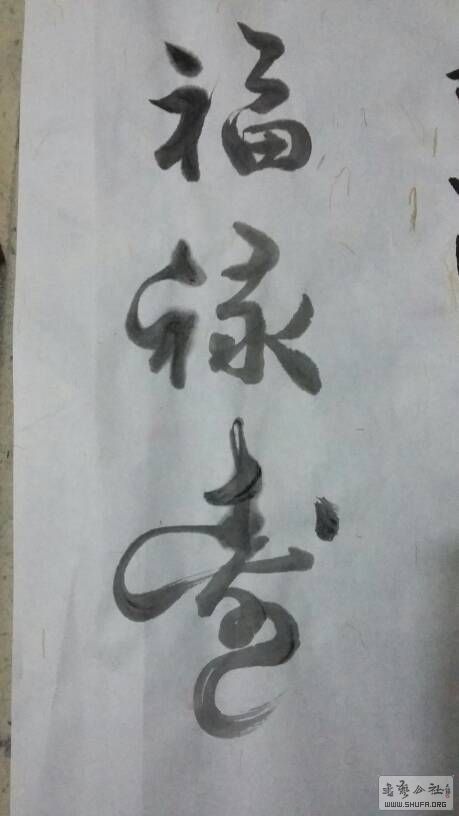 福禄寿
書艺公社
WWW.SHUFA.ORG